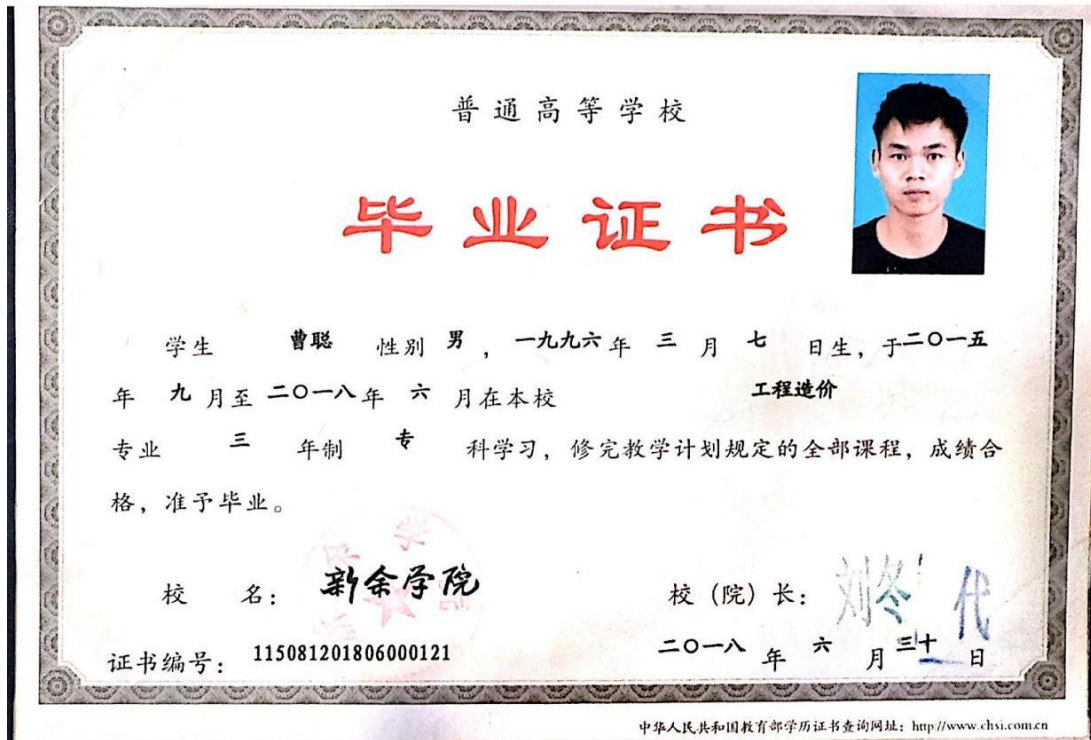 普通高等学校
毕业证书
学生 曹聪 性别 男，一九九六年 三 月 七 日生，于二〇一五
年 九 月至 二〇一八年 六 月在本校 工程造价
专业 三 年制 专 科学习，修完教学计划规定的全部课程，成绩合
格，准予毕业。
校 名：新余学院 校（院）长：刘冬代
证书编号：115081201806000121 二〇一八 年 六 月 三十 日
中华人民共和国教育部学历证书查询网址：http://www.chsi.com.cn